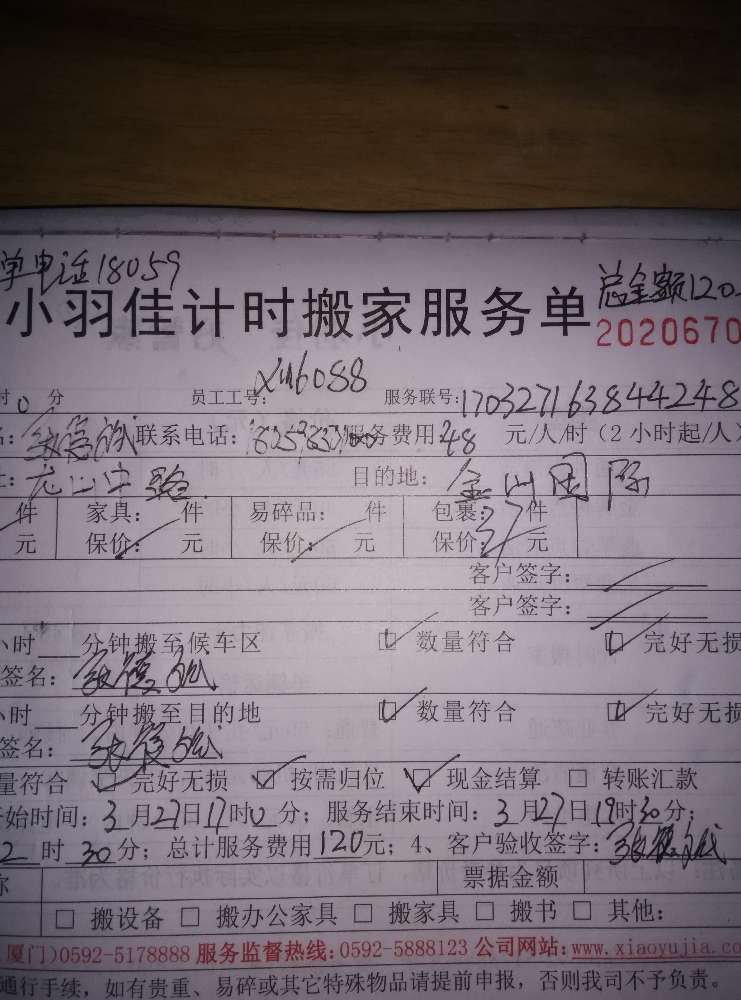 单电话18059 总金额120.
小羽佳计时搬家服务单 2020670
时0 分 员工工号: 6088 服务联号:1703271638444248
联系电话: 服务费用48 元/人/时(2小时起/人)
目的地: 金山国际
件 家具: 件 易碎品: 件 包裹: 件
元 保价: 元 保价: 元 保价: 元
客户签字:
客户签字:
小时 分钟搬至候车区 数量符合 完好无损
签名:
小时 分钟搬至目的地 数量符合 完好无损
签名:
量符合 完好无损 按需归位 现金结算 转账汇款
开始时间:3月27日17时0分;服务结束时间:3月27日19时30分;
2时30分;总计服务费用120元;4、客户验收签字:
称 票据金额
搬设备 搬办公家具 搬家具 搬书 其他:
厦门)0592-5178888 服务监督热线:0592-5888123 公司网站:www.xiaoyujia.co
通行手续,如有贵重、易碎或其它特殊物品请提前申报,否则我司不予负责。